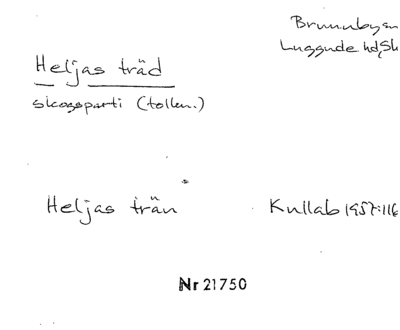 Brunnbysn
Luggude hd, Sk
Heljas träd
skogsparti (tollen.)
Heljas trän
Kullab 1957:116
Nr 21750